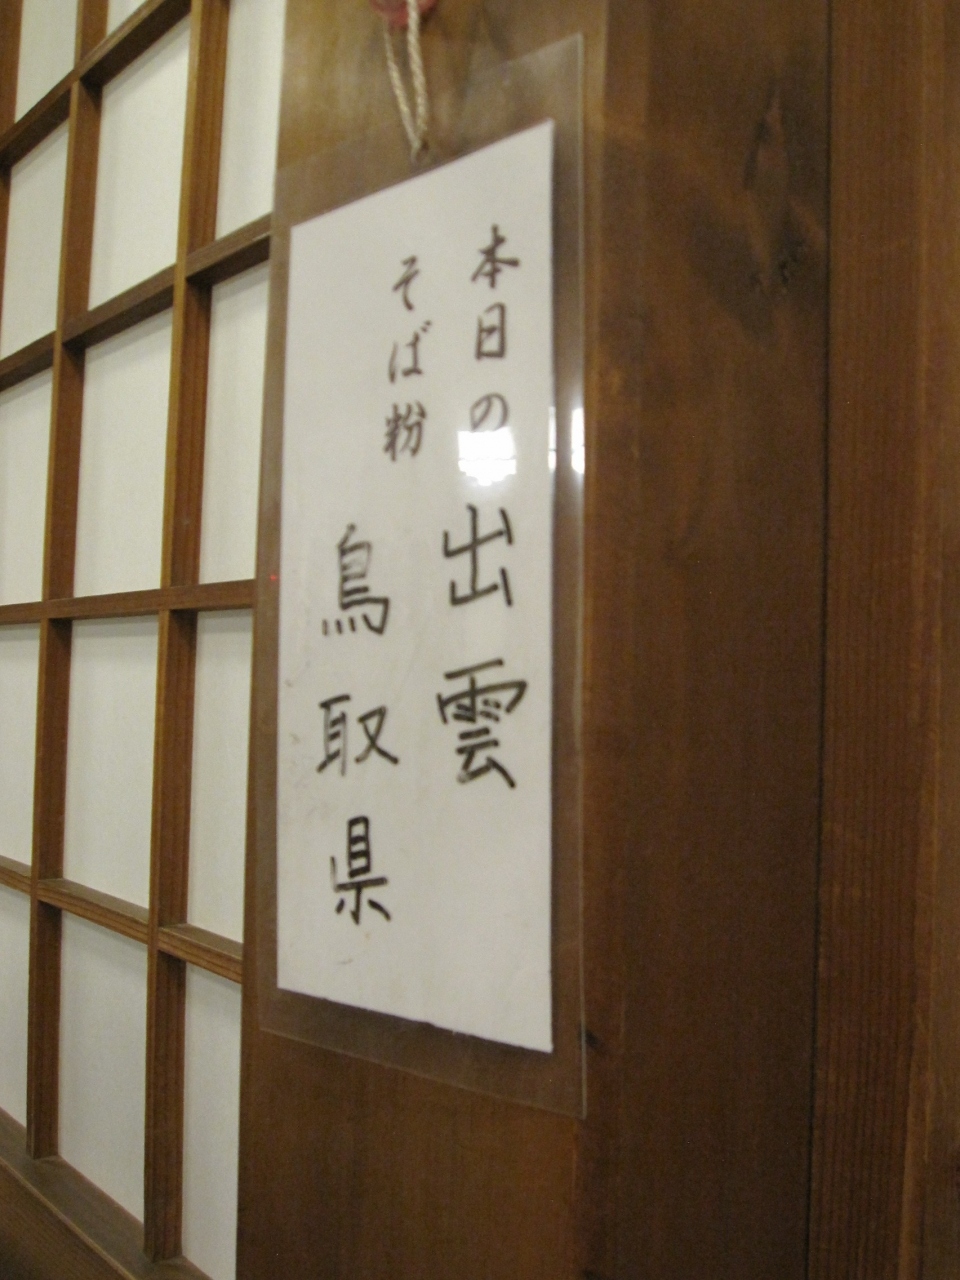 本日の 出雲
そば粉 鳥取県